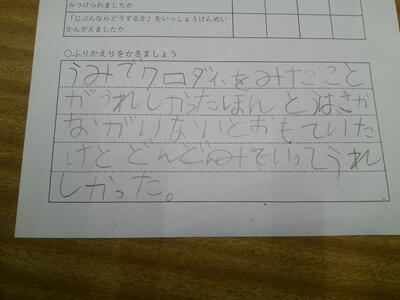 みつけられましたか
「じぶんならどうするか」をいっしょうけんめい
かんがえましたか
○ふりかえりをかきましょう
うみでクロダイをみたこと
がうれしかったほんとうはさか
ながいないとおもていた
けどどんどんみていってうれ
しかった。